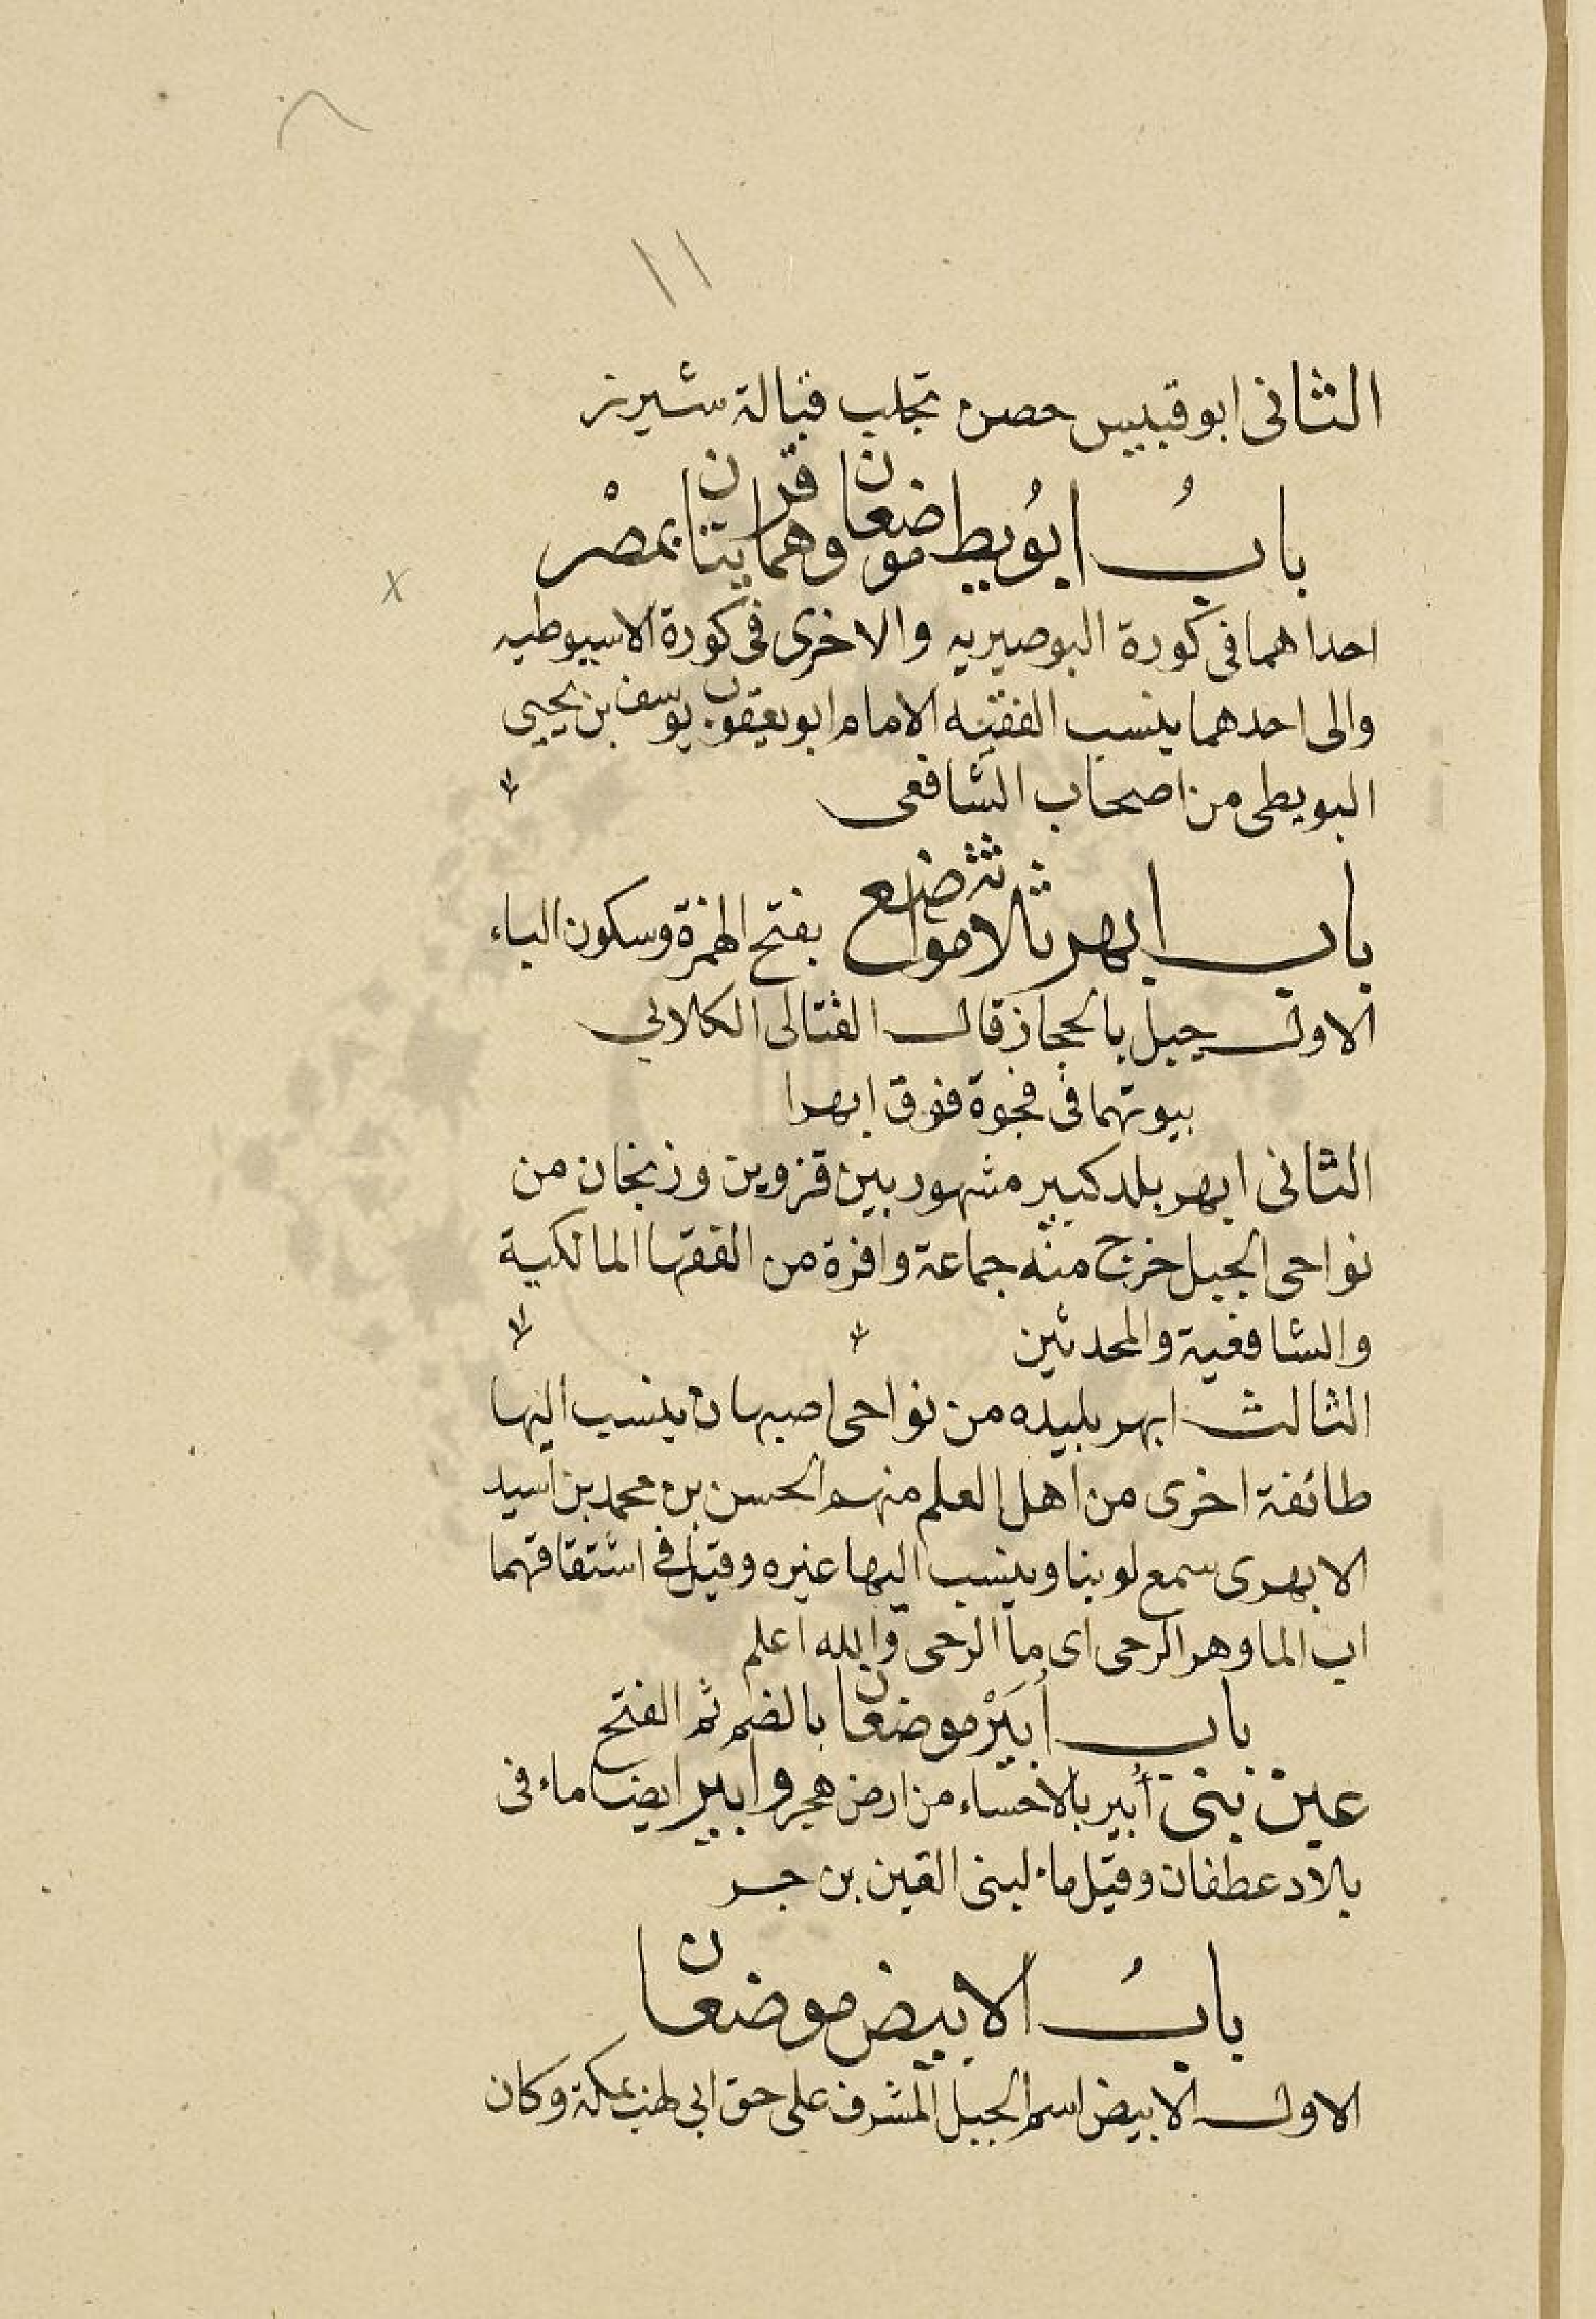 ١١
الثانى ابو قبيس حصن بحلب قبالة شيزر
بابُ ابُويط موضعان وهما قريتان بمصْر
احداهما فى كورة البوصيريه والاخرى فى كورة الاسيوطيه
والى احدهما ينسب الفقيه الامام ابو يعقوب يوسف بن يحيى
البويطى من اصحاب الشافعى
باب ابهر ثلاثة مواضع بفتح الهمزة وسكون الباء
الاول جبل بالحجاز قال القتالى الكلابي
بيوتهما فى فجوة فوق ابهرا
الثانى ابهر بلد كبير مشهور بين قزوين وزنجان من
نواحى الجبل خرج منه جماعة وافرة من الفقها المالكية
والشافعية والمحدثين
الثالث ابهر بليده من نواحى اصبهان ينسب اليها
طائفة اخرى من اهل العلم منهم الحسن بن محمد بن اسيد
الابهرى سمع لوينا وينسب اليها غيره وقيل في اشتقاقهما
اب الما وهر الرحى اى ما الرحى والله اعلم
باب أُبَيْر موضعان بالضم ثم الفتح
عين بنى أُبير بالاحساء من ارض هجر وابير ايضا ماء فى
بلاد عطفان وقيل ماء لبنى القين بن جسر
بابُ الابيض موضعان
الاول الابيض اسم الجبل المشرف على حق ابى لهب بمكة وكان